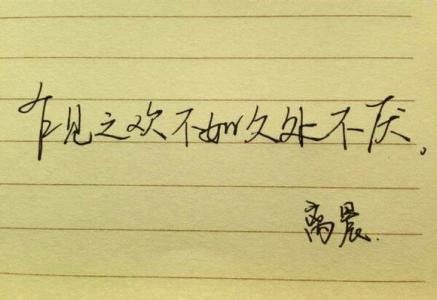 乍见之欢不如久处不厌。
离晨.